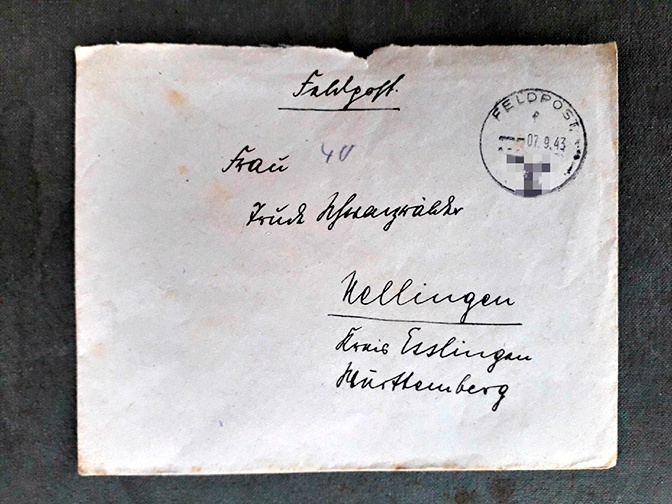 Feldpost.
FELDPOST
e
07.9.43
Frau
40
Trude Schwarzwälder
Nellingen
Kreis Esslingen
Württemberg